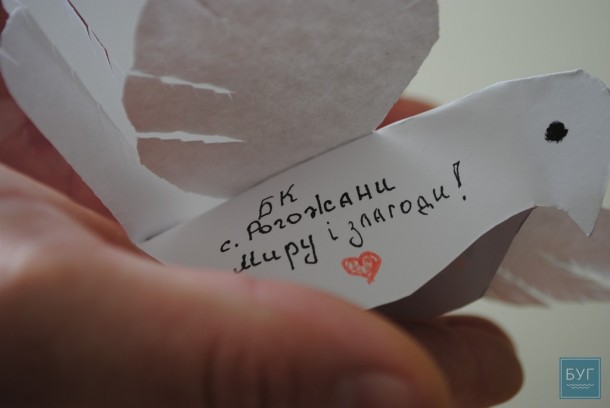 БК
с. Рогожани
Миру і злагоди!
БУГ